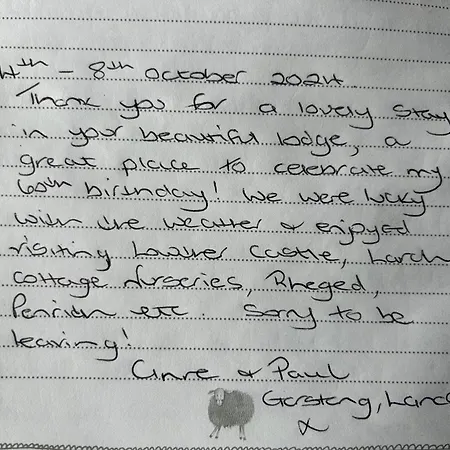 4th - 8th October 2024
Thank you for a lovely stay
in your beautiful lodge, a
great place to celebrate my
60th birthday! We were lucky
with the weather & enjoyed
visiting Lowther Castle, Larch
cottage Nurseries, Rheged,
Penrith etc. Sorry to be
leaving!
& Paul
Garstang, Lancs
X